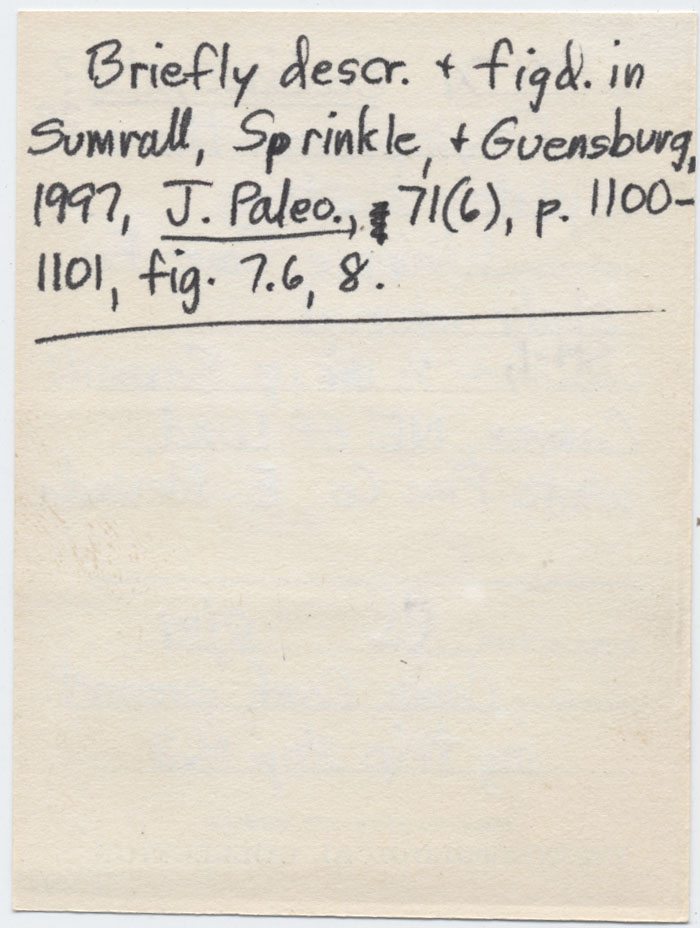 Briefly descr. + figd. in
Sumrall, Sprinkle, + Guensburg,
1997, J. Paleo., 71(6), p. 1100-
1101, fig. 7.6, 8.